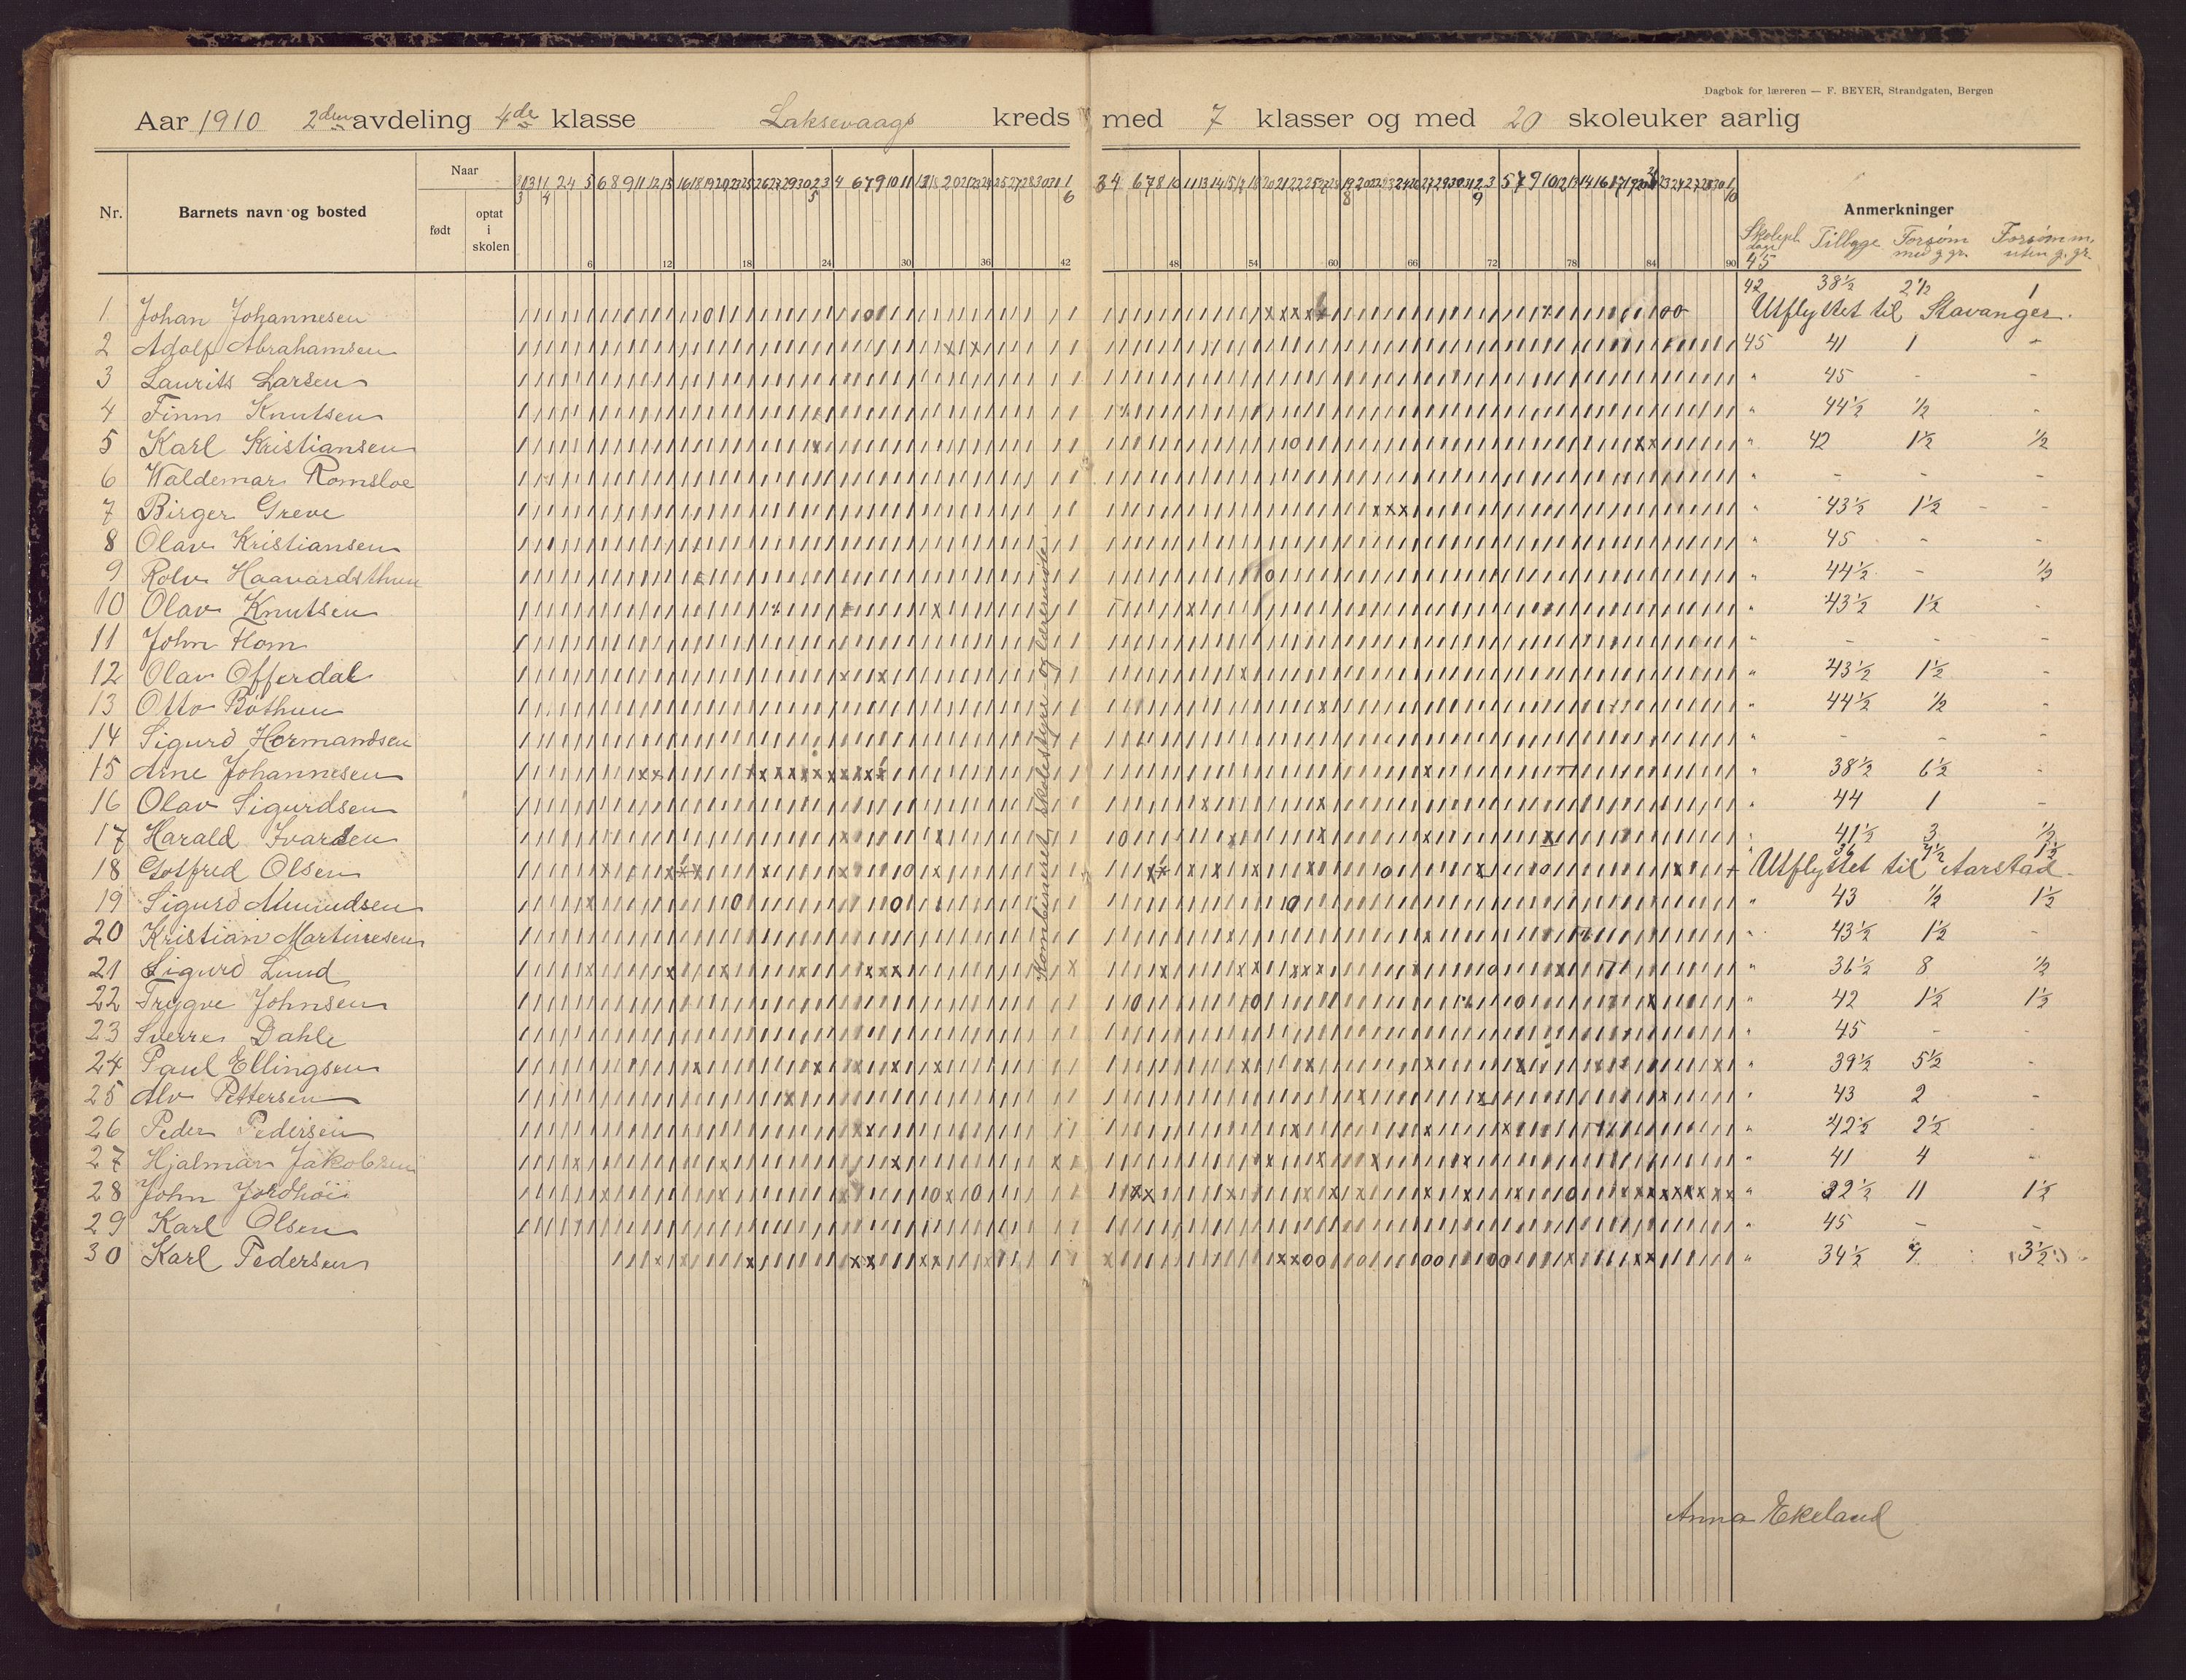 Dagbok for læreren — F. BEYER, Strandgaten, Bergen
Aar 1910 2den avdeling 4de klasse Laksevaags kreds med 7 klasser og med 20 skoleuker aarlig
Nr. Barnets navn og bosted Naar født optat i skolen Anmerkninger
Skolepl. dage Tilbage Forsøm med g. gr. Forsømm. uten g. gr.
6 12 18 24 30 36 42 48 54 60 66 72 78 84 90 45
42 38½ 2½ 1
1 Johan Johannesen Utflyttet til Stavanger.
2 Adolf Abrahamsen 45 41 1 -
3 Laurits Larsen " 45 - -
4 Finn Knutsen " 44½ ½ -
5 Karl Kristiansen " 42 1½ ½
6 Waldemar Romsloe " - - -
7 Birger Greve " 43½ 1½ - -
8 Olav Kristiansen " 45 - -
9 Rolv Haavardsthun " 44½ - ½
10 Olav Knutsen " 43½ 1½ -
11 John Flom " - - -
12 Olav Offerdal " 43½ 1½ -
13 Otto Bøthun " 44½ ½ -
14 Sigurd Hermandsen " - - -
15 Arne Johannesen " 38½ 6½ -
16 Olav Sigurdsen " 44 1 -
17 Harald Ivarsen " 41½ 3 ½
" 36 7½ 1½
18 Gotfred Olsen Utflyttet til Aarstad.
19 Sigurd Amundsen " 43 ½ 1½
20 Kristian Martinesen " 43½ 1½ -
21 Sigurd Lund " 36½ 8 ½
22 Trygve Johnsen " 42 1½ 1½
23 Sverre Dahle " 45 - -
24 Paul Ellingsen " 39½ 5½ -
25 Alv Pettersen " 43 2 -
26 Peder Pedersen " 42½ 2½ -
27 Hjalmar Jakobsen " 41 4 -
28 John Jordhøi " 32½ 11 1½
29 Karl Olsen " 45 - -
30 Karl Pedersen " 34½ 7 (3½)
Kombineret skolestyre- og læremøte.
Anna Ekeland